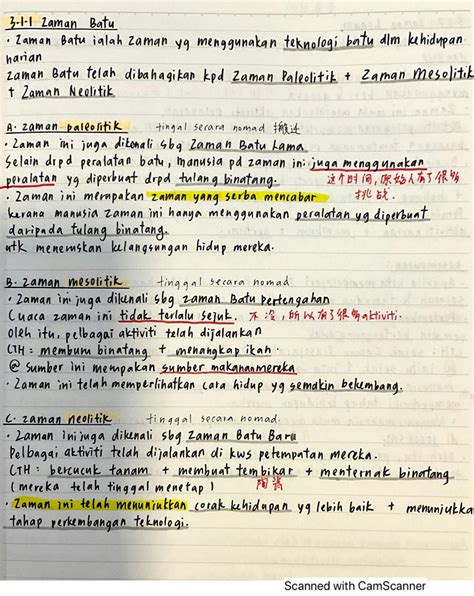 3.1.1 Zaman Batu
• Zaman Batu ialah Zaman yg menggunakan teknologi batu dlm kehidupan
harian
Zaman Batu telah dibahagikan kpd Zaman Paleolitik + Zaman Mesolitik
+ Zaman Neolitik
A. Zaman paleolitik tinggal secara nomad 搬迁
• Zaman ini juga dikenali sbg Zaman Batu Lama
Selain drpd peralatan batu, manusia pd zaman ini juga menggunakan
peralatan yg diperbuat drpd tulang binatang. 这个时间,原始人有了很多
• Zaman ini merupakan zaman yang serba mencabar 挑战.
kerana manusia zaman ini hanya menggunakan peralatan yg diperbuat
daripada tulang binatang.
utk meneruskan kelangsungan hidup mereka.
B. Zaman mesolitik tinggal secara nomad
• Zaman ini juga dikenali sbg zaman Batu pertengahan
Cuaca zaman ini tidak terlalu sejuk. 不冷,所以有了很多aktiviti.
Oleh itu, pelbagai aktiviti telah dijalankan
CTH: memburu binatang + menangkap ikan.
@ Sumber ini merupakan sumber makanan mereka
• Zaman ini telah memperlihatkan cara hidup yg semakin bekembang.
C. Zaman neolitik tinggal secara nomad.
• Zaman ini juga dikenali sbg Zaman Batu Baru
Pelbagai aktiviti telah dijalankan di kws petempatan mereka.
CTH: bercucuk tanam + membuat tembikar + menternak binatang
(mereka telah tinggal menetap) 陶器
• Zaman ini telah menunjukkan corak kehidupan yg lebih baik + menunjukka
tahap perkembangan teknologi.
Scanned with CamScanner